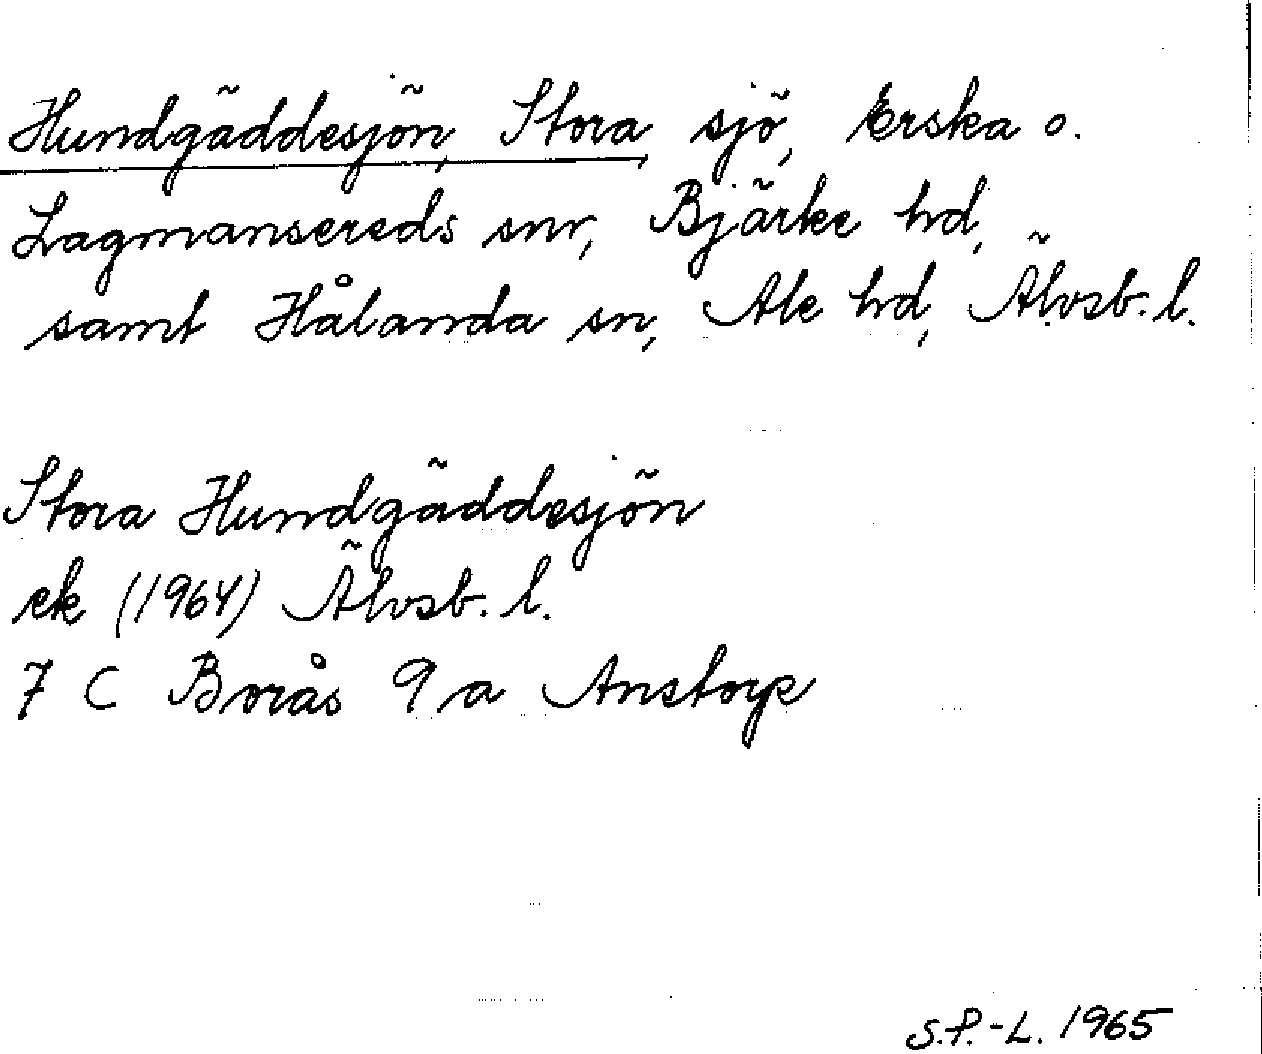 Hundgäddesjön, Stora, sjö, Erska o.
Lagmansereds snr, Bjärke hd,
samt Hålanda sn, Ale hd, Älvsb. l.
Stora Hundgäddesjön
ek (1964) Älvsb. l.
7 C Borås 9 a Anstorp
S.P.-L. 1965